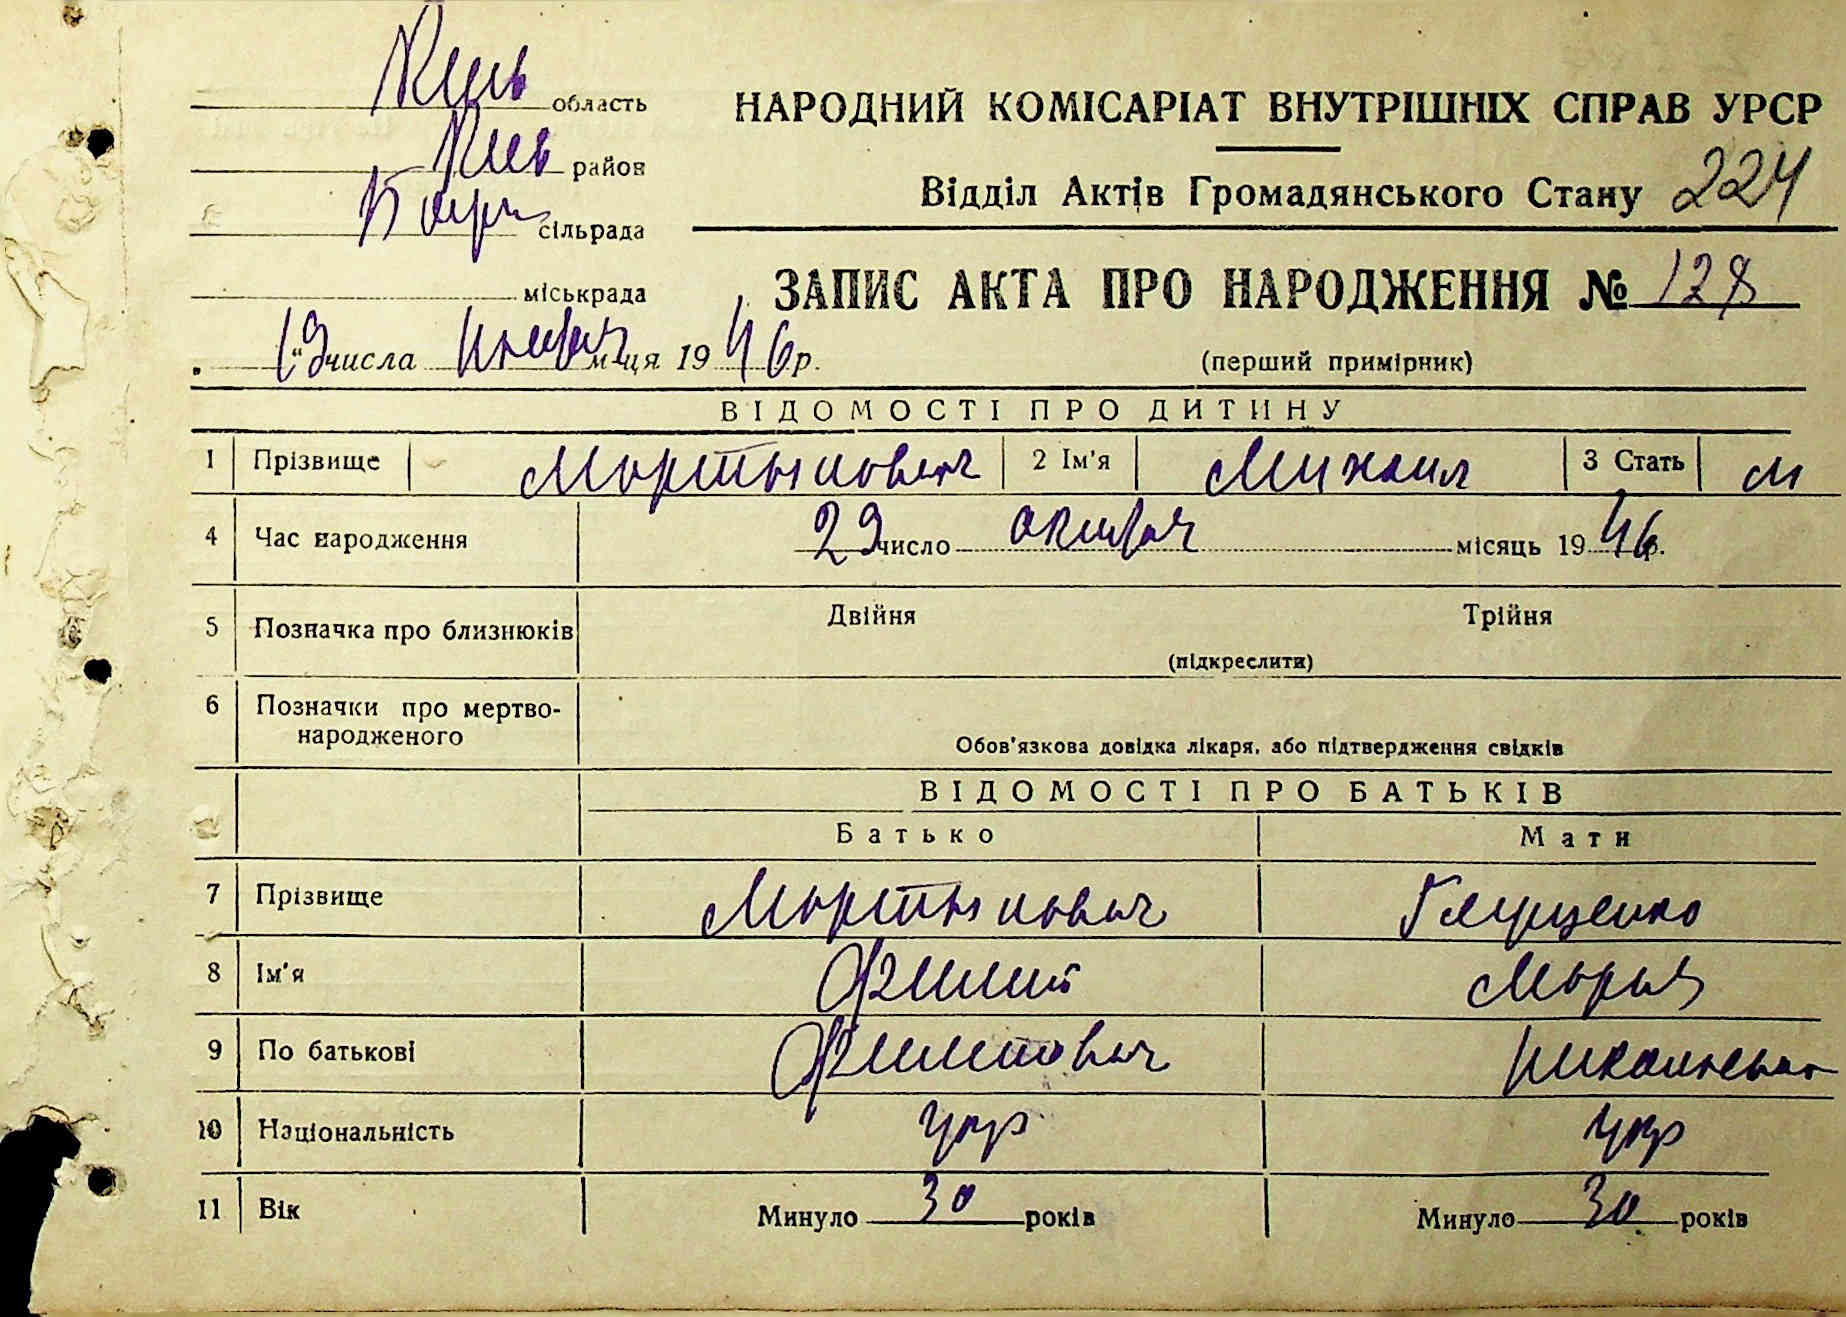 Киев область
Киев район
сільрада
міськрада
НАРОДНИЙ КОМІСАРІАТ ВНУТРІШНІХ СПРАВ УРСР
Відділ Актів Громадянського Стану 224
ЗАПИС АКТА ПРО НАРОДЖЕННЯ № 128
„19" числа ноября м-ця 1946 р.
(перший примірник)
ВІДОМОСТІ ПРО ДИТИНУ
1 Прізвище Мартынович 2 Ім'я Михаил 3 Стать м
4 Час народження 29 число октября місяць 1946 р.
5 Позначка про близнюків Двійня Трійня
(підкреслити)
6 Позначки про мертво-
народженого
Обов'язкова довідка лікаря, або підтвердження свідків
ВІДОМОСТІ ПРО БАТЬКІВ
Батько Мати
7 Прізвище Мартынович Глущенко
8 Ім'я Филип Марья
9 По батькові Филипович
10 Національність укр укр
11 Вік Минуло 30 років Минуло 30 років